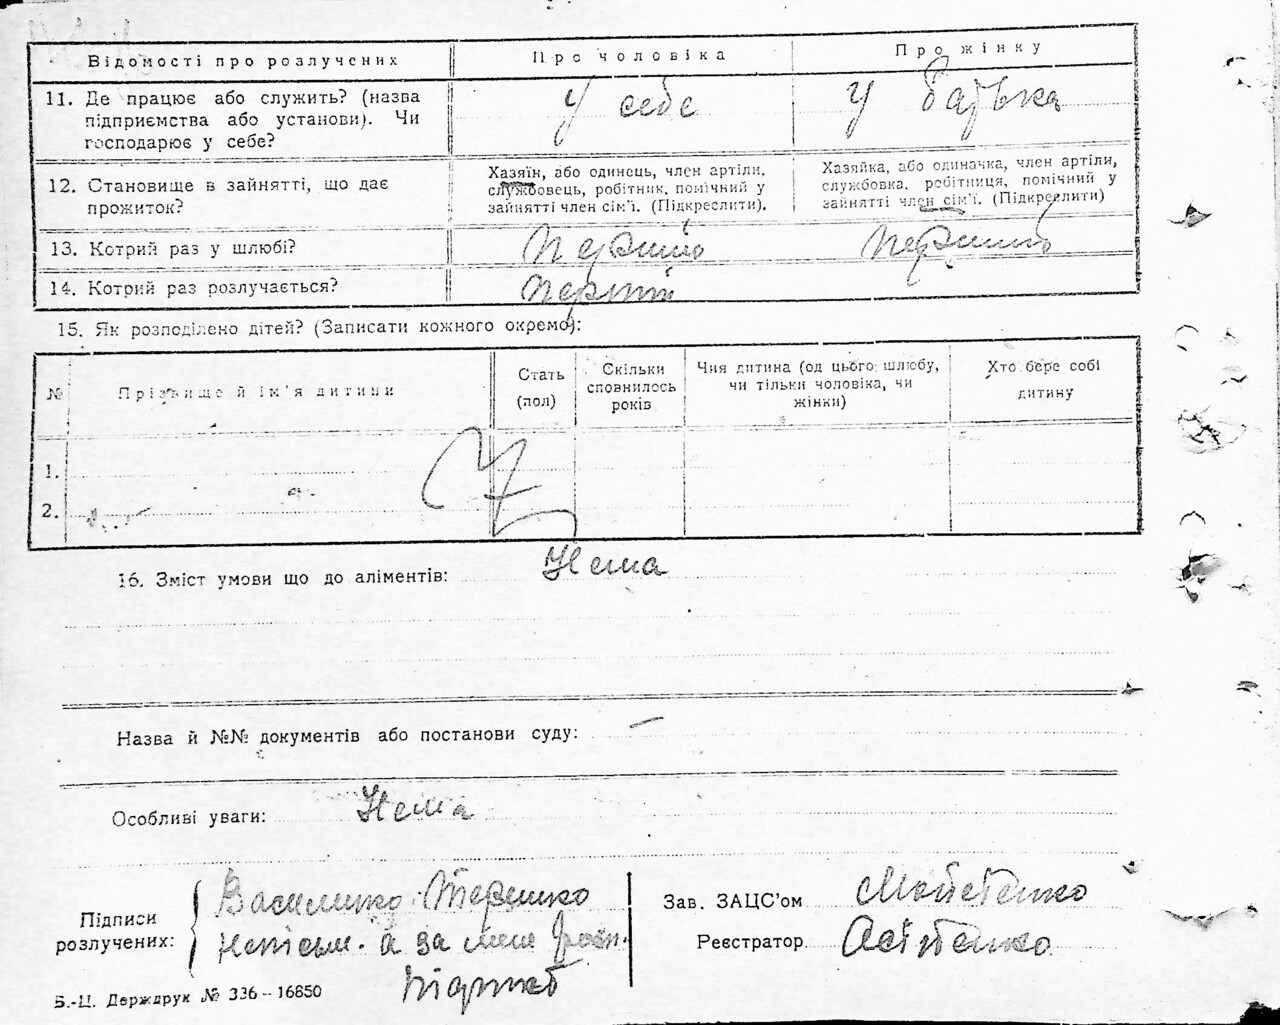 Відомості про розлучених
Про чоловіка
Про жінку
11. Де працює або служить? (назва підприємства або установи). Чи господарює у себе?
У себе
У батька
12. Становище в зайнятті, що дає прожиток?
Хазяїн, або одинець, член артіли, службовець, робітник, помічний у зайнятті член сім'ї. (Підкреслити).
Хазяйка, або одиначка, член артіли, службовка, робітниця, помічний у зайнятті член сім'ї. (Підкреслити)
13. Котрий раз у шлюбі?
14. Котрий раз розлучається?
15. Як розподілено дітей? (Записати кожного окремо):
№
Прізвище й ім'я дитини
Стать (пол)
Скільки сповнилось років
Чия дитина (од цього шлюбу, чи тільки чоловіка, чи жінки)
Хто бере собі дитину
1.
2.
16. Зміст умови що до аліментів: Нема
Назва й №№ документів або постанови суду: —
Особливі уваги: Нема
Підписи розлучених:
а за мене
Зав. ЗАЦС'ом
Реєстратор
Б.-Ц. Держдрук № 336–16850